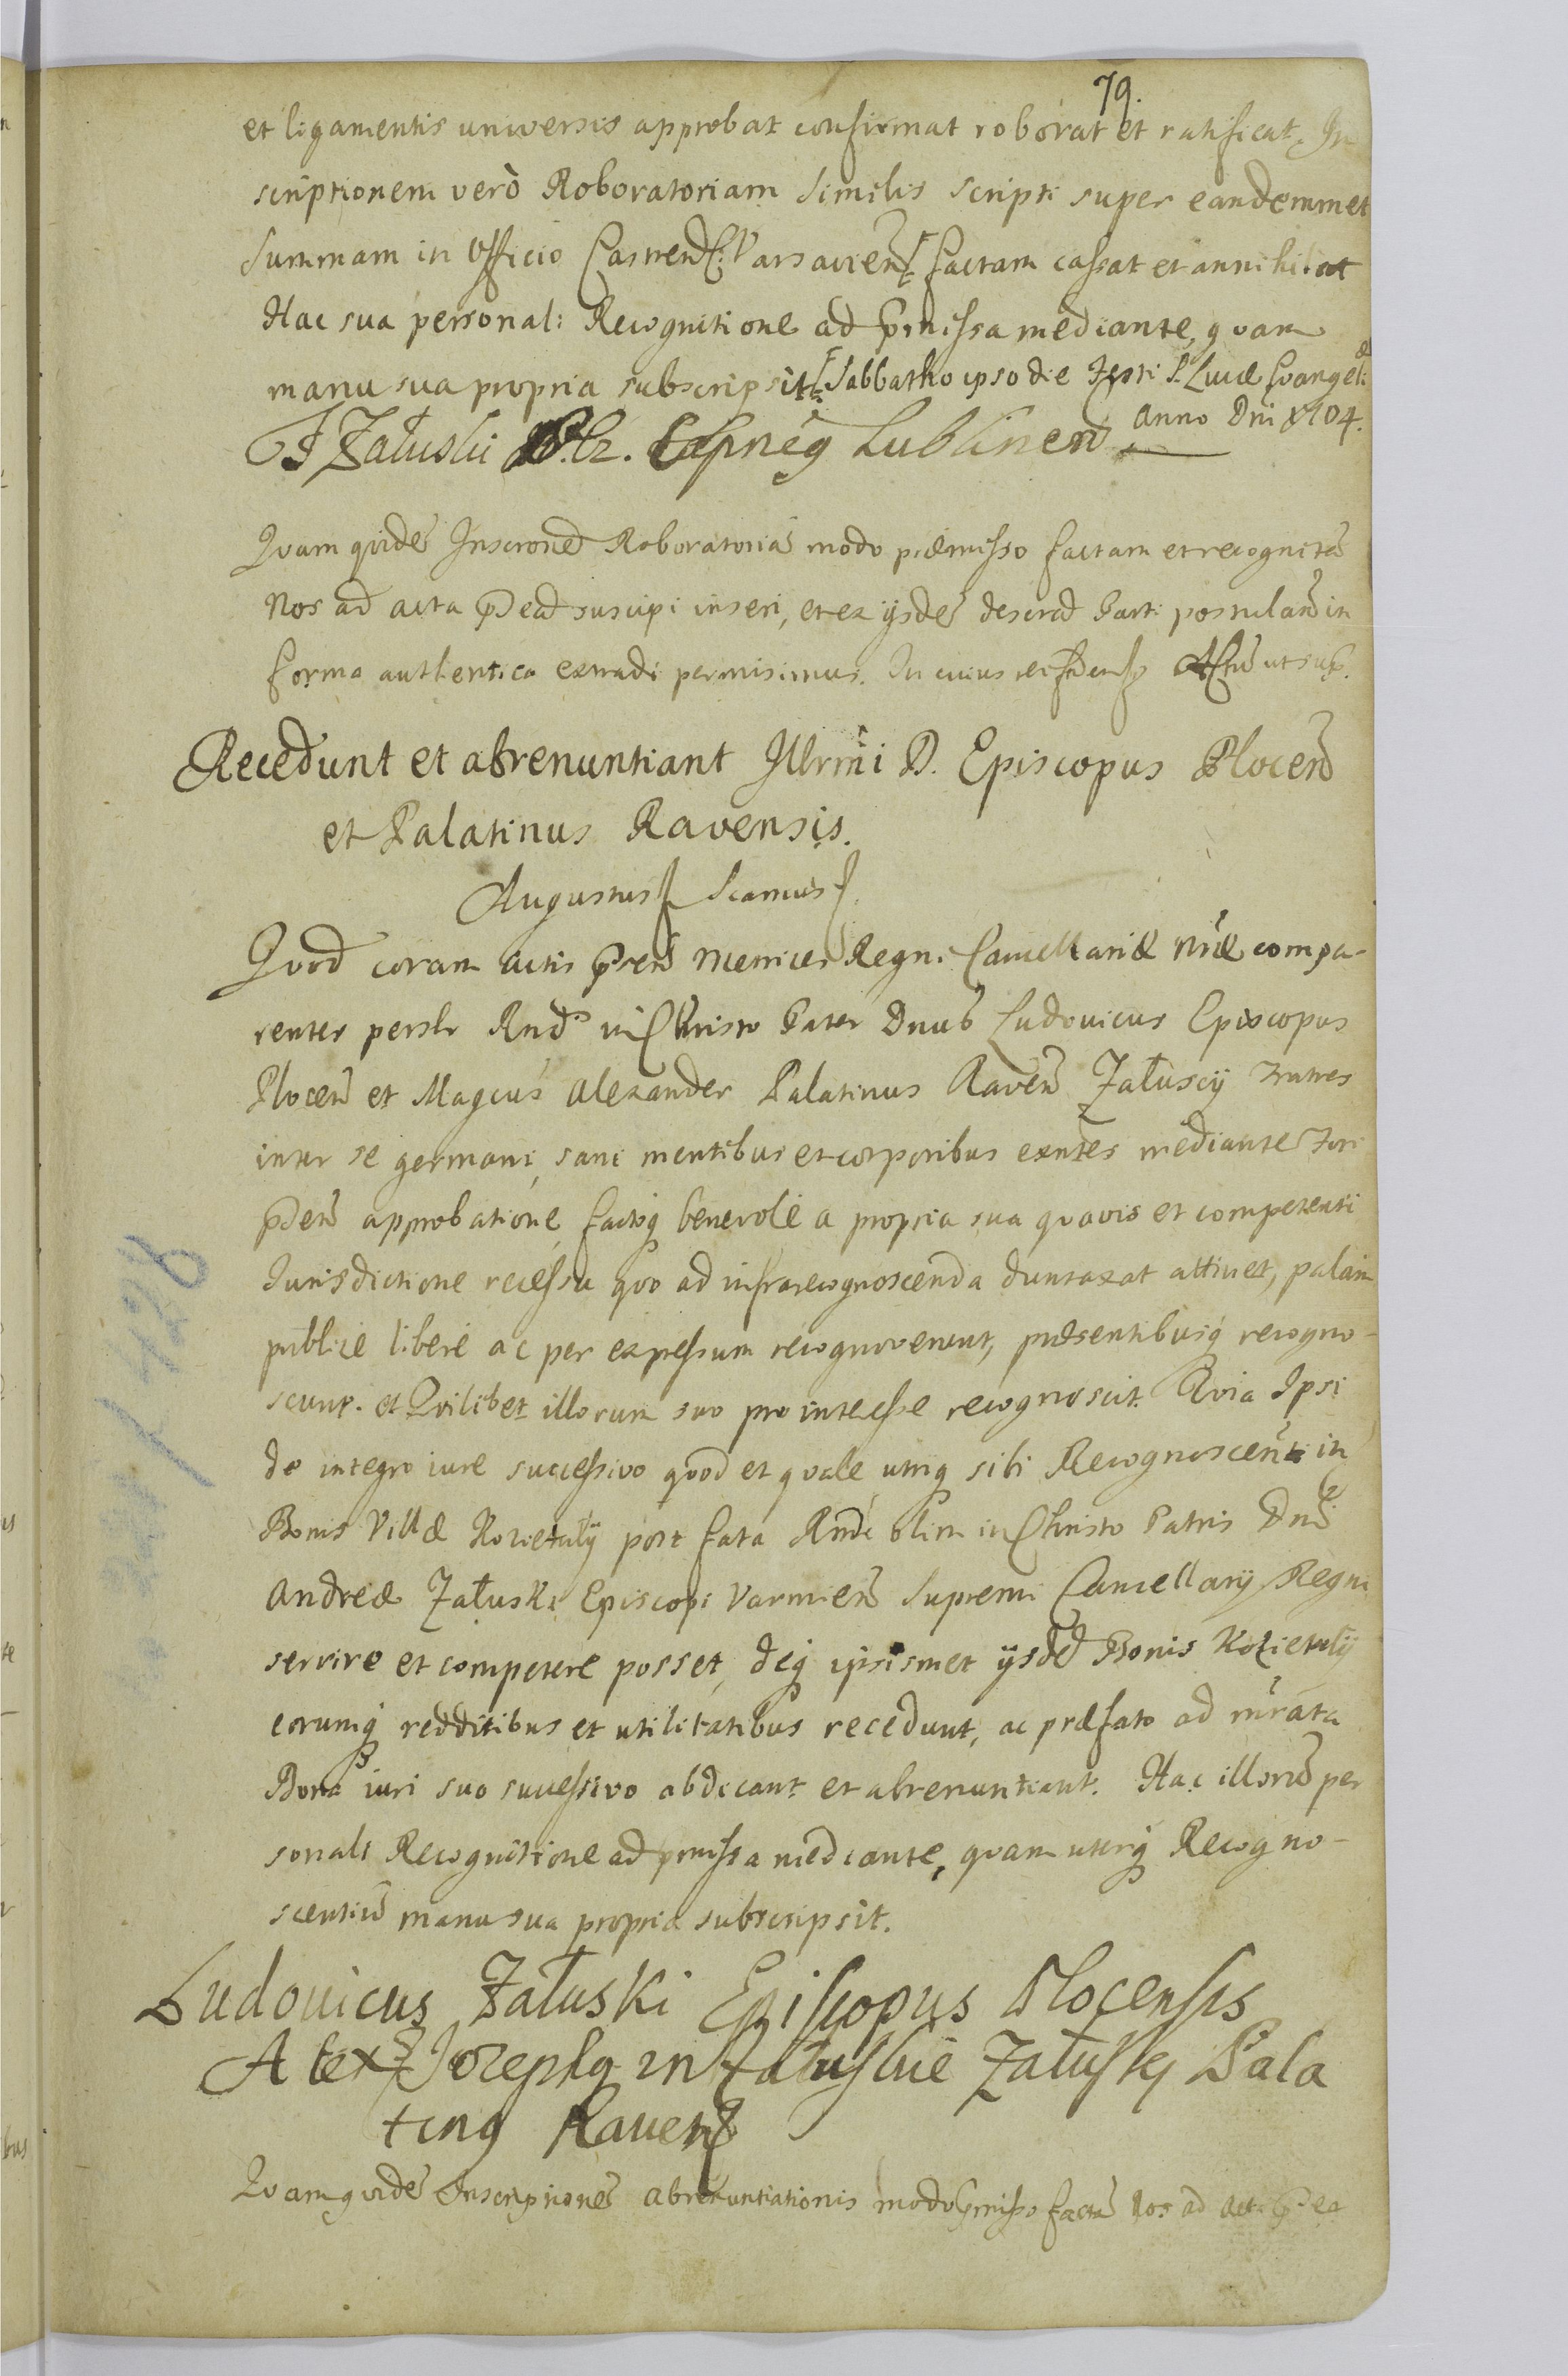 79.
et ligamentis universis approbat confirmat roborat et ratificat. In
scriptionem verò Roboratoriam similis scripti super eandemmet
summam in Officio Castren: Varsavien factam cassat et annihilat
Hac sua personali Recognitione ad pmissa mediante, quam
manu sua propria subscripsit. Sabbatho ipso die Festi S. Lucæ Evangeli
Anno Dni 1704.
Załuski Lublinen
Quam quidẽ Inscronẽ Roboratoriã modo præmisso factam et recognitã
Nos ad acta pntia suscipi inseri, et ex ijsdẽ descrid Parti postulanti in
forma authentica extradi permisimus. In cuius rei fidem Actũ ut sup.
Recedunt et abrenuntiant Illrmi D. Episcopus Plocen
et Palatinus Ravensis.
Augustus scamus
Quod coram Actis prñ Metrices Regni Cancellariæ nræ compa-
rentes persłr Rnd⁹ in Christo Pater Dnus Ludovicus Episcopus
Plocen et Magcus Alexander Palatinus Raven Załuscij Fratres
inter se germani, sani mentibus et corporibus exntes mediante Fori
pñ approbatione, factoq benevolè a propria sua quavis et competenti
Iurisdictione recessu quo ad infrarecognoscenda duntaxat attinet, palam
publicè liberè ac per expressum recognoverunt, præsentibusq recogno-
scunt. et Quilibet illorum suo pro interesse recognoscit. Quia Ipsi
de integro iure successivo quod et quale utriq sibi Recognoscenti in
Bonis Villæ Kozietuły post fata Rndi olim in Christo Patris Dni
Andreæ Załuski Episcopi Varmien Supremi Cancellarij Regni
servire et competere posset, deq ipsismet ijsdẽ Bonis Kozietuły
eorumq redditibus et utilitatibus recedunt, ac præfato ad mrata
Bona iuri suo successivo abdicant et abrenuntiant. Hac illorũ per
sonali Recognitione ad pmissa mediante, quam uterq Recogno-
scentiũ manu sua propria subscripsit.
Ludovicus Załuski Episcopus Plocensis
Alex Joseph⁹ in Załuskie Załuskj Pala
tin⁹ Raven
Quam quidẽ Inscriptionẽ abrenuntiationis modo pmisso factã Nos ad Acta